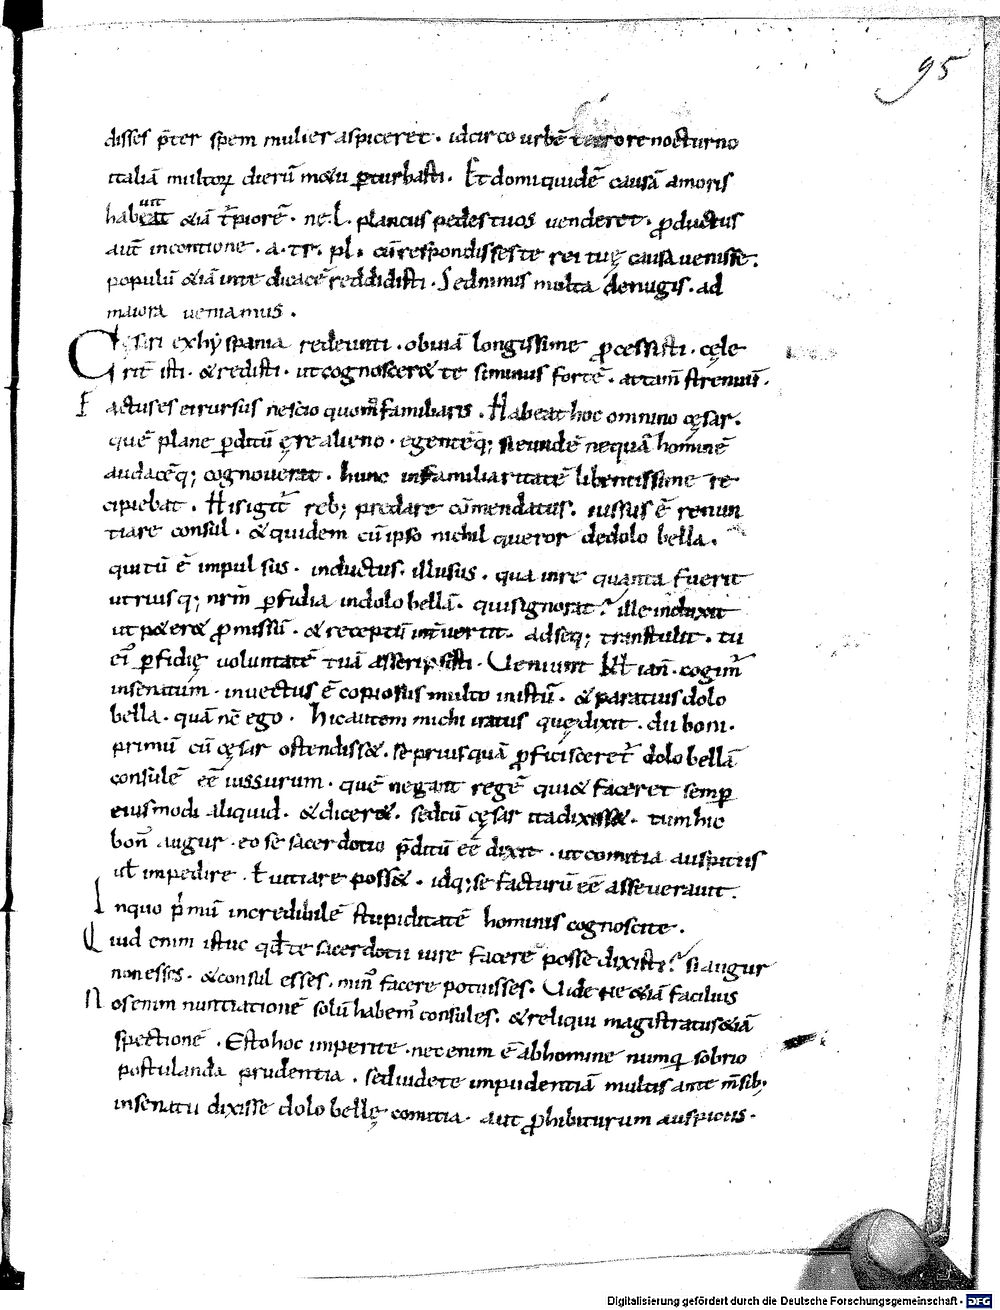 95
disses p̄ter spem mulier aspiceret · idcirco urbē terrore nocturno
italiā multoꝝ dierū mø&u ꝑturbasti · Et domi quidē causā amoris
habeat uit &iā t̄piorē · ne · l · plancus pedes tuos uenderet · ꝓductus
aut̄ incontione · a · tr · pl · cū respondisses te rei tuę causa uenisse ·
populū &iā inte dicacē reddidisti · Sed nimis multa denugis · ad
maiora ueniamus ·
C ęsari exhyspania redeunti · obuiā longissime ꝓcessisti · cęle
rit̄ isti · & redisti · ut cognoscer& te siminus fortē · attam̄ strenuū ·
F actus es ei rursus nescio quom̄ familiaris · Habeat hoc omnino cęsar ·
quē plane ꝑditū ęre alieno · egentēq; si eundē nequā hominē
audacēq; cognouerat · hunc in familiaritatē libentissime re
cipiebat · His igit̄ reb; predare cōmendatus · iussus ē renun
tiare consul · & quidem cū ipso nichil queror dedolo bella ·
qui tū ē impulsus · inductus · illusus · qua inre quanta fuerit
utriusq; nrm̄ ꝑfidia indolobellā · quis ignorat? ille induxit
ut p&er& ꝓmissū · & receptū int̄uertit · adseq; transtulit · tu
ei᷒ ꝑfidię uoluntatē tuā asscripsisti · Veniunt kƚ ian̄ · cogim̄
insenatum · inuectus ē copiosius multo inistū · & paratius dolo
bella · quā nc̄ ego · Hic autem michi iratus quę dixit · dii boni ·
primū cū cęsar ostendiss& · se priusquā ꝓficisceret̄ dolobellā
consulē eē iussurum · quē negant regē qui & faceret semꝑ
eiusmodi aliquid · & dicer& · sed cū cęsar ita dixiss& · tum hic
bon᷒ augur · eo se sacerdotio p̄ditū eē dixit · ut comitia auspitiis
uƚ impedire · ƚ uitiare poss& · idq; se facturū eē asseuerauit ·
I nquo p̄mū incredibilē stupiditatē hominis cognoscite ·
Q uid enim istuc qđ te sacerdotii iure facere posse dixisti? si augur
non esses · & consul esses · min᷒ facere potuisses · Uide ne &iā facilius
N os enim nuntiationē solū habem᷒ consules · & reliqui magistratus &iā
spectionē · Esto hoc imperite · nec enim ē abhomine numqā sobrio
postulanda prudentia · sed uidete impudentiā multis ante m̄sib;
insenatu dixisse dolobellę comitia · aut ꝓhibiturum auspiciis ·
Digitalisierung gefördert durch die Deutsche Forschungsgemeinschaft - DFG